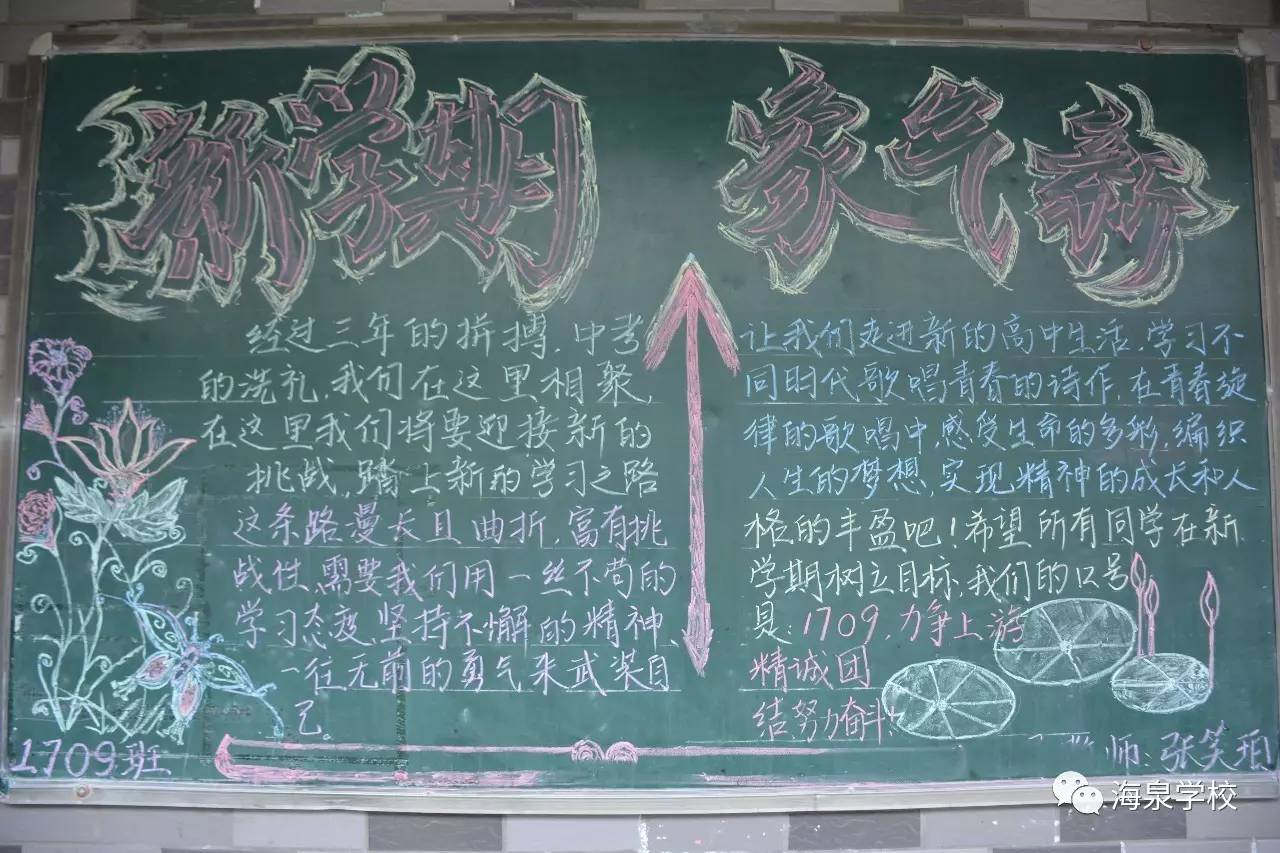 新学期 家气新
经过三年的拼搏，中考
的洗礼，我们在这里相聚，
在这里我们将要迎接新的
挑战，踏上新的学习之路
这条路曼长且曲折，富有挑
战性、需要我们用一丝不苟的
学习态度、坚持不懈的精神
一往无前的勇气来武装自
己。
让我们走进新的高中生活，学习不
同时代歌唱青春的诗作，在青春旋
律的歌唱中，感受生命的多彩，编织
人生的梦想，实现精神的成长和人
格的丰盈吧！希望所有同学在新
学期树立目标，我们的口号
是：1709，力争上游
精诚团
结努力奋斗！
1709班
师：张笑珀
海泉学校